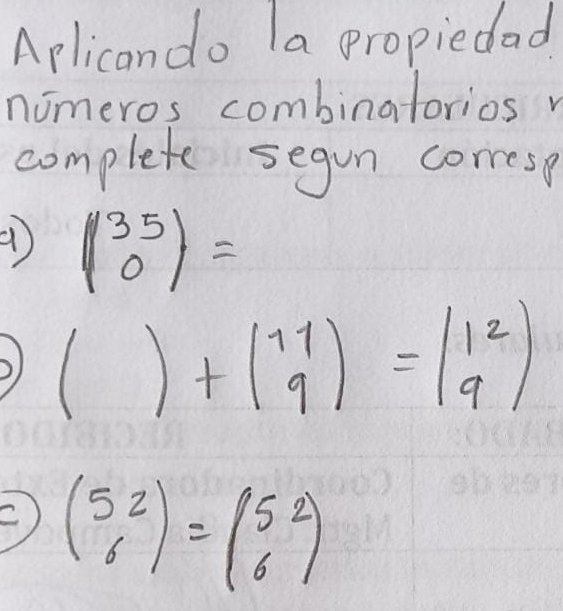 Aplicando la propiedad
números combinatorios
complete segun corresp
a) (35 0) =
( ) + (11 9) = (12 9)
c) (52 6) = (52 6)